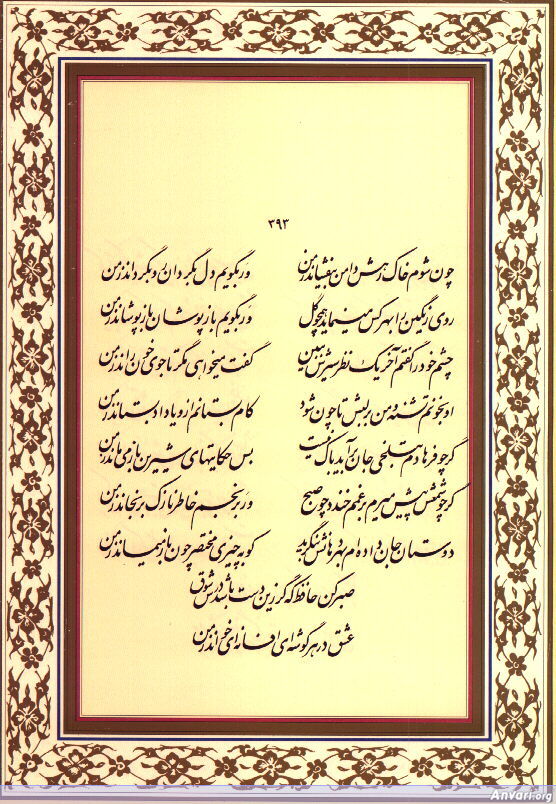 ۳۹۳
چون شوم خاک رهش دامن بیفشاند ز من ور بگویم دل بگردان رو بگرداند ز من
روی رنگین را بهر کس مینماید همچو گل ور بگویم باز پوشان باز پوشاند ز من
چشم خود را گفتم آخر یک نظر سیرش ببین گفت میخواهی مگر تا جوی خون راند ز من
او بخونم تشنه و من بر لبش تا چون شود کام بستانم ازو یا داد بستاند ز من
گر چو فرهادم بتلخی جان برآید باک نیست بس حکایتهای شیرین باز می ماند ز من
گر چو شمعش پیش میرم بر غمم خندد چو صبح ور برنجم خاطر نازک برنجاند ز من
دوستان جان داده ام بهر دهانش بنگرید کو به چیزی مختصر چون باز میماند ز من
صبر کن حافظ که گر زین دست باشد درس شوق
عشق در هر گوشه ای افسانه ای خواند ز من
Anvari.org